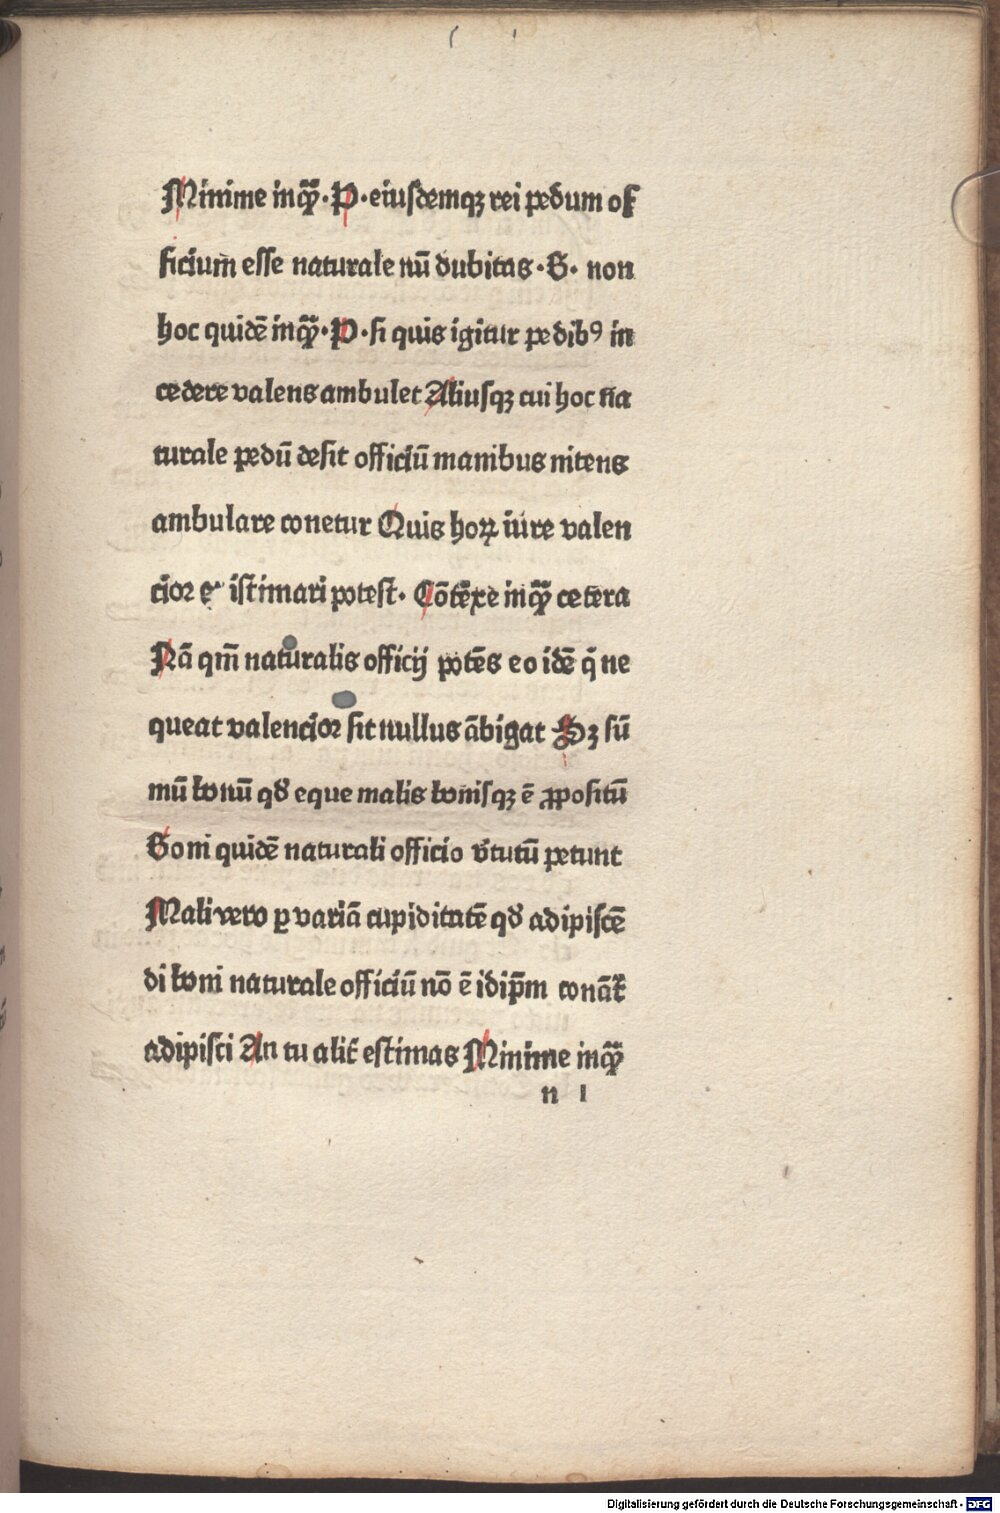 Minime inqͣ̄ꝫ · P · eiusdemqꝫ rei pedum of
ficium esse naturale nū dubitas · B · non
hoc quidē inqͣ̄ꝫ · P · si quis igitur pedibꝰ in
cedere valens ambulet Aliusqꝫ cui hoc na
turale pedū desit officiū manibus nitens
ambulare conetur Quis hoꝝ iure valen
cior eˣistimari potest · Cōtexe inqͣ̄ꝫ cetera
Nā qm̄ naturalis officij potēs eo idē q̄ ne
queat valencior sit nullus ābigat Sꝫ sū
mū bonū qd̕ eque malis bonisqꝫ ē ꝓpositū
Boni quidē naturali officio v̕tutū petunt
Mali vero ꝑ variā cupiditatē qd̕ adipiscē
di boni naturale officiū nō ē idip̄m conāt̕
adipisci An tu alit̕ estimas Minime inqͣ̄ꝫ
n 1
Digitalisierung gefördert durch die Deutsche Forschungsgemeinschaft - DFG